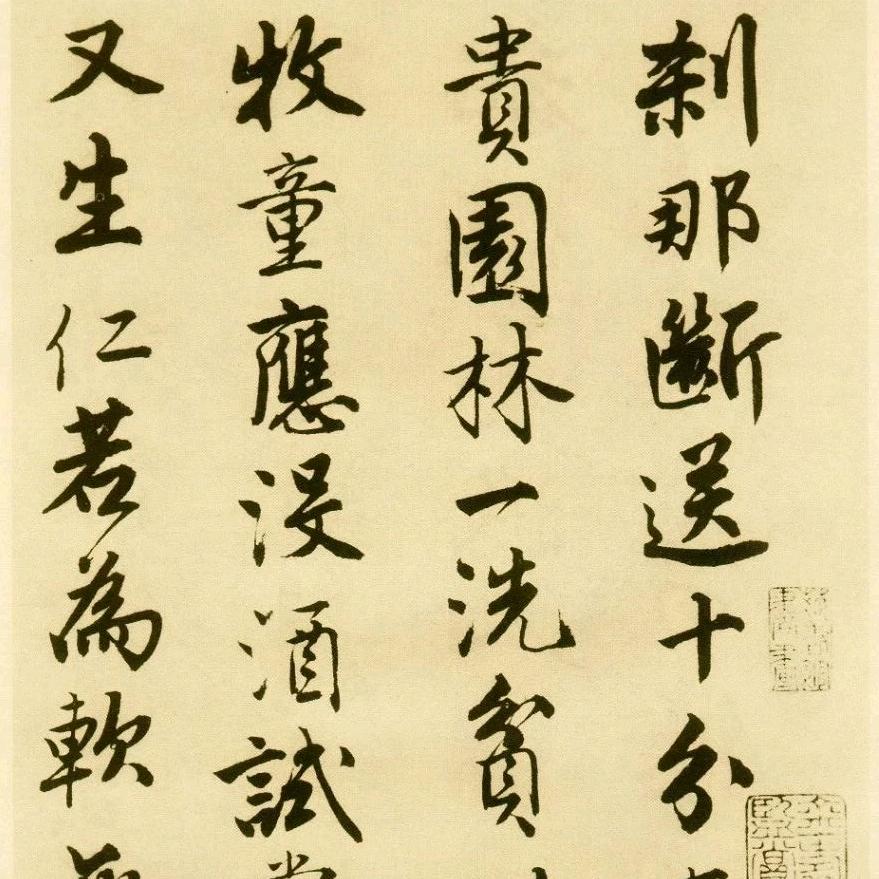 刹那斷送十分
貴園林一洗貧
牧童應没酒試嘗
又生仁若為軟